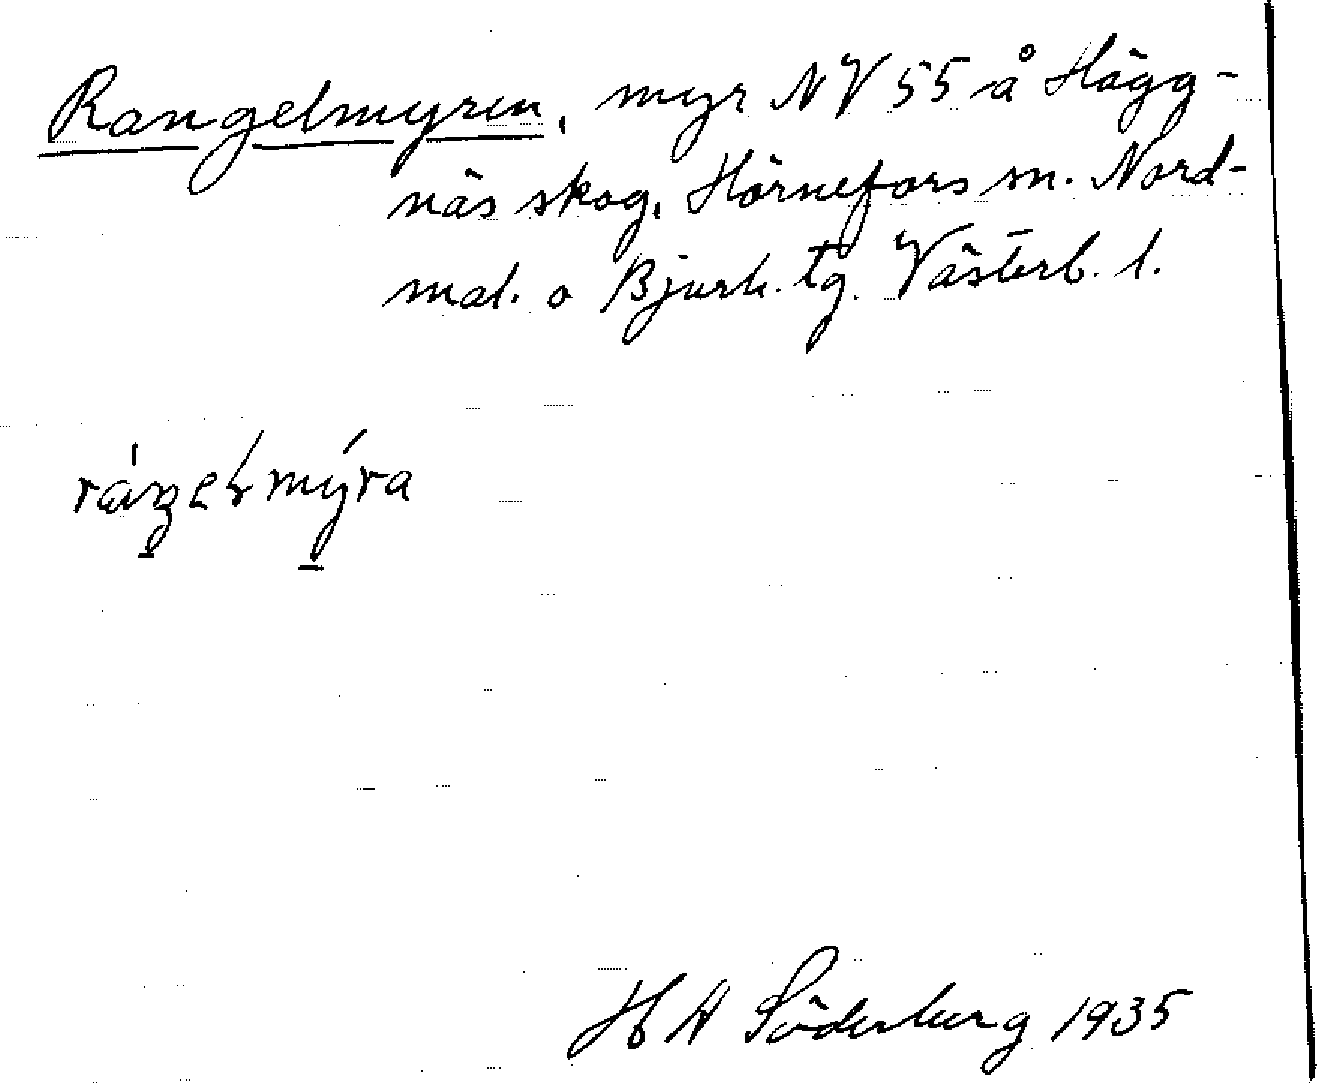 Rangelmyren, myr NV 55 å Hägg-
näs skog, Hörnefors sn. Nord-
mal. o Bjurh. tg. Västerb. l.
H A Söderberg 1935